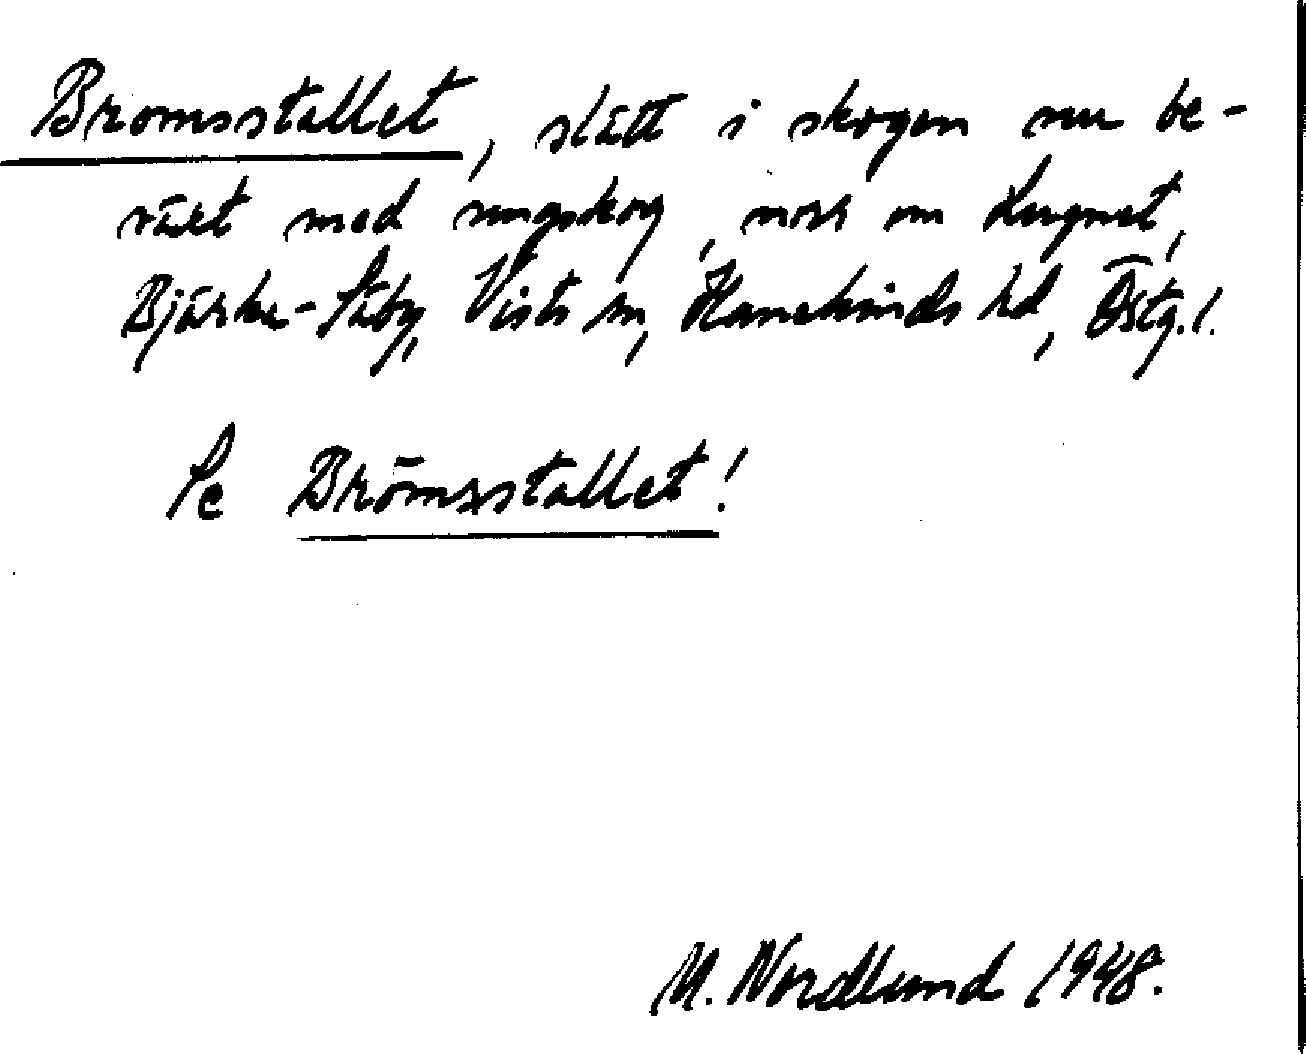 Bromsstallet, slätt i skogen nu be-
växt med ungskog, norr om Lugnet,
Bjärka-Säby, Vists sn, Hanekinds hd, Östg.l.
Se Brömsstallet!
M. Nordlund 1948.